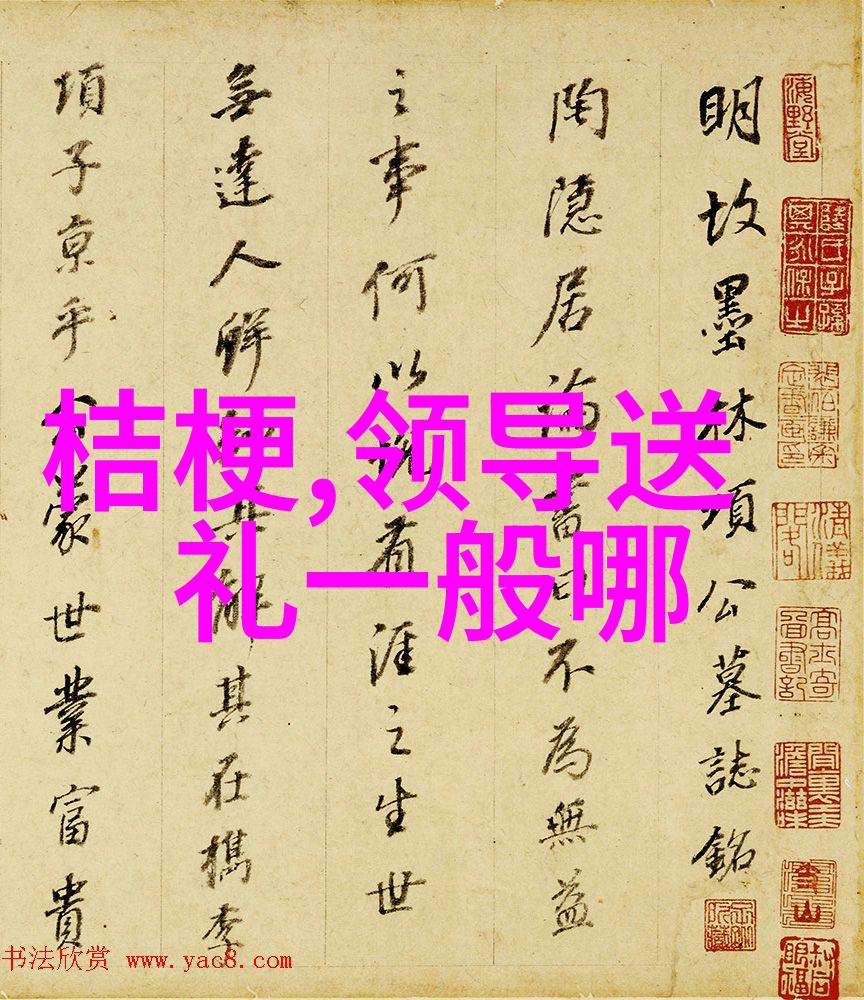 明故墨林項公墓誌銘
陶隱居論書曰不為無益
之事何以悅有涯之生世
無達人鮮其解其在檇李
項子京乎公蒙世業富貴
桔梗,领导送
礼一般哪
海野堂
书法欣赏 www.yac8.com